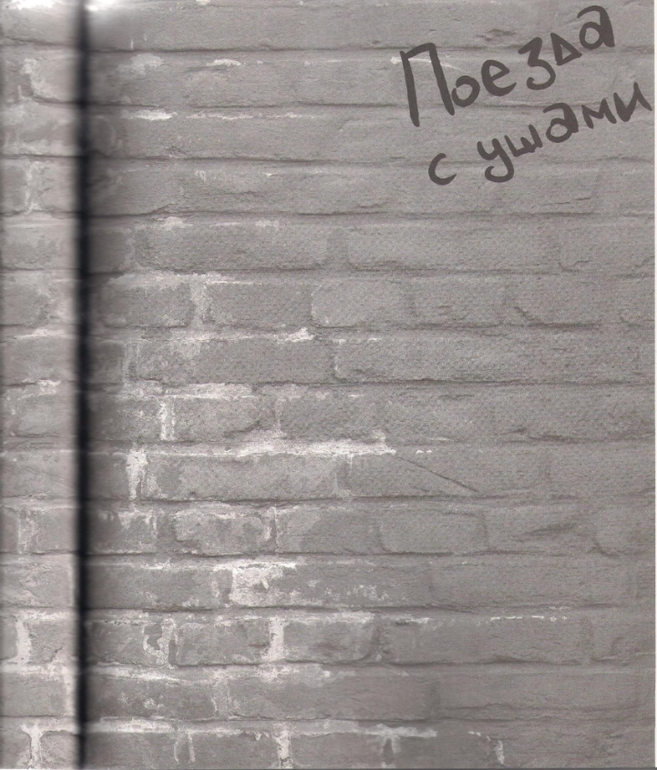 Поезда
с ушами